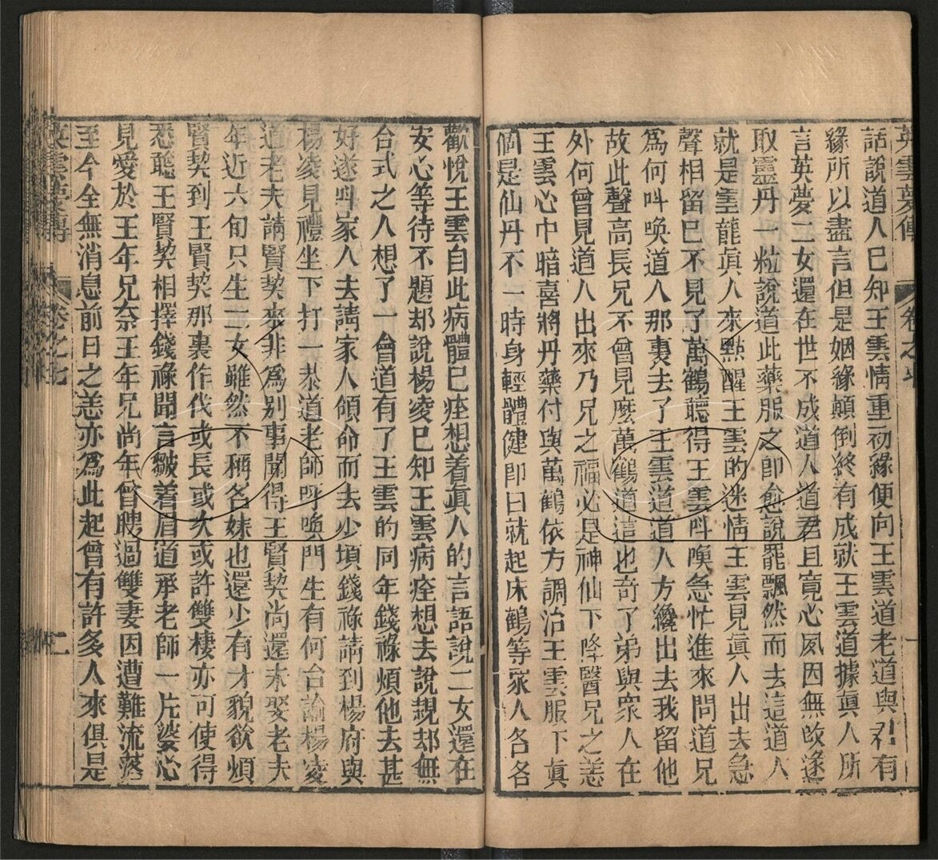 英雲夢傳
卷之七
話說道人已知王雲情重初緣便向王雲道老道與君有
緣所以盡言但是姻緣顛倒終有成就王雲道據眞人所
言英夢二女還在世不成道人道君且寬心夙因無改遂
取靈丹一粒說道此藥服之卽愈說罷飄然而去這道人
就是雲龍眞人來點醒王雲的迷情王雲見眞人出去急
聲相留已不見了萬鶴聽得王雲呌喚急忙進來問道兄
爲何呌喚道人那裏去了王雲道道人方纔出去我留他
故此聲高長兄不曾見麼萬鶴道這也奇了弟與眾人在
外何曾見道人出來乃兄之福必是神仙下降醫兄之恙
王雲心中暗喜將丹藥付與萬鶴依方調治王雲服下眞
個是仙丹不一時身輕體健卽日就起床鶴等家人各各
歡悅王雲自此病體已痊想着眞人的言語說二女還在
安心等待不題却說楊凌已知王雲病痊想去說親却無
合式之人想了一會道有了王雲的同年錢祿煩他去甚
好遂呌家人去請家人領命而去少頃錢祿請到楊府與
楊凌見禮坐下打一恭道老師呼喚門生有何台諭楊凌
道老夫請賢契來非爲别事聞得王賢契尚還未娶老夫
年近六旬只生一女雖然不稱名妹也還少有才貌欲煩
賢契到王賢契那裏作伐或長或次或許雙棲亦可使得
悉聽王賢契相擇錢祿聞言皺着眉道承老師一片婆心
見愛於王年兄奈王年兄尚年曾聘過雙妻因遭難流落
至今全無消息前日之恙亦爲此起曾有許多人來俱是
英雲夢傳
卷之七
二